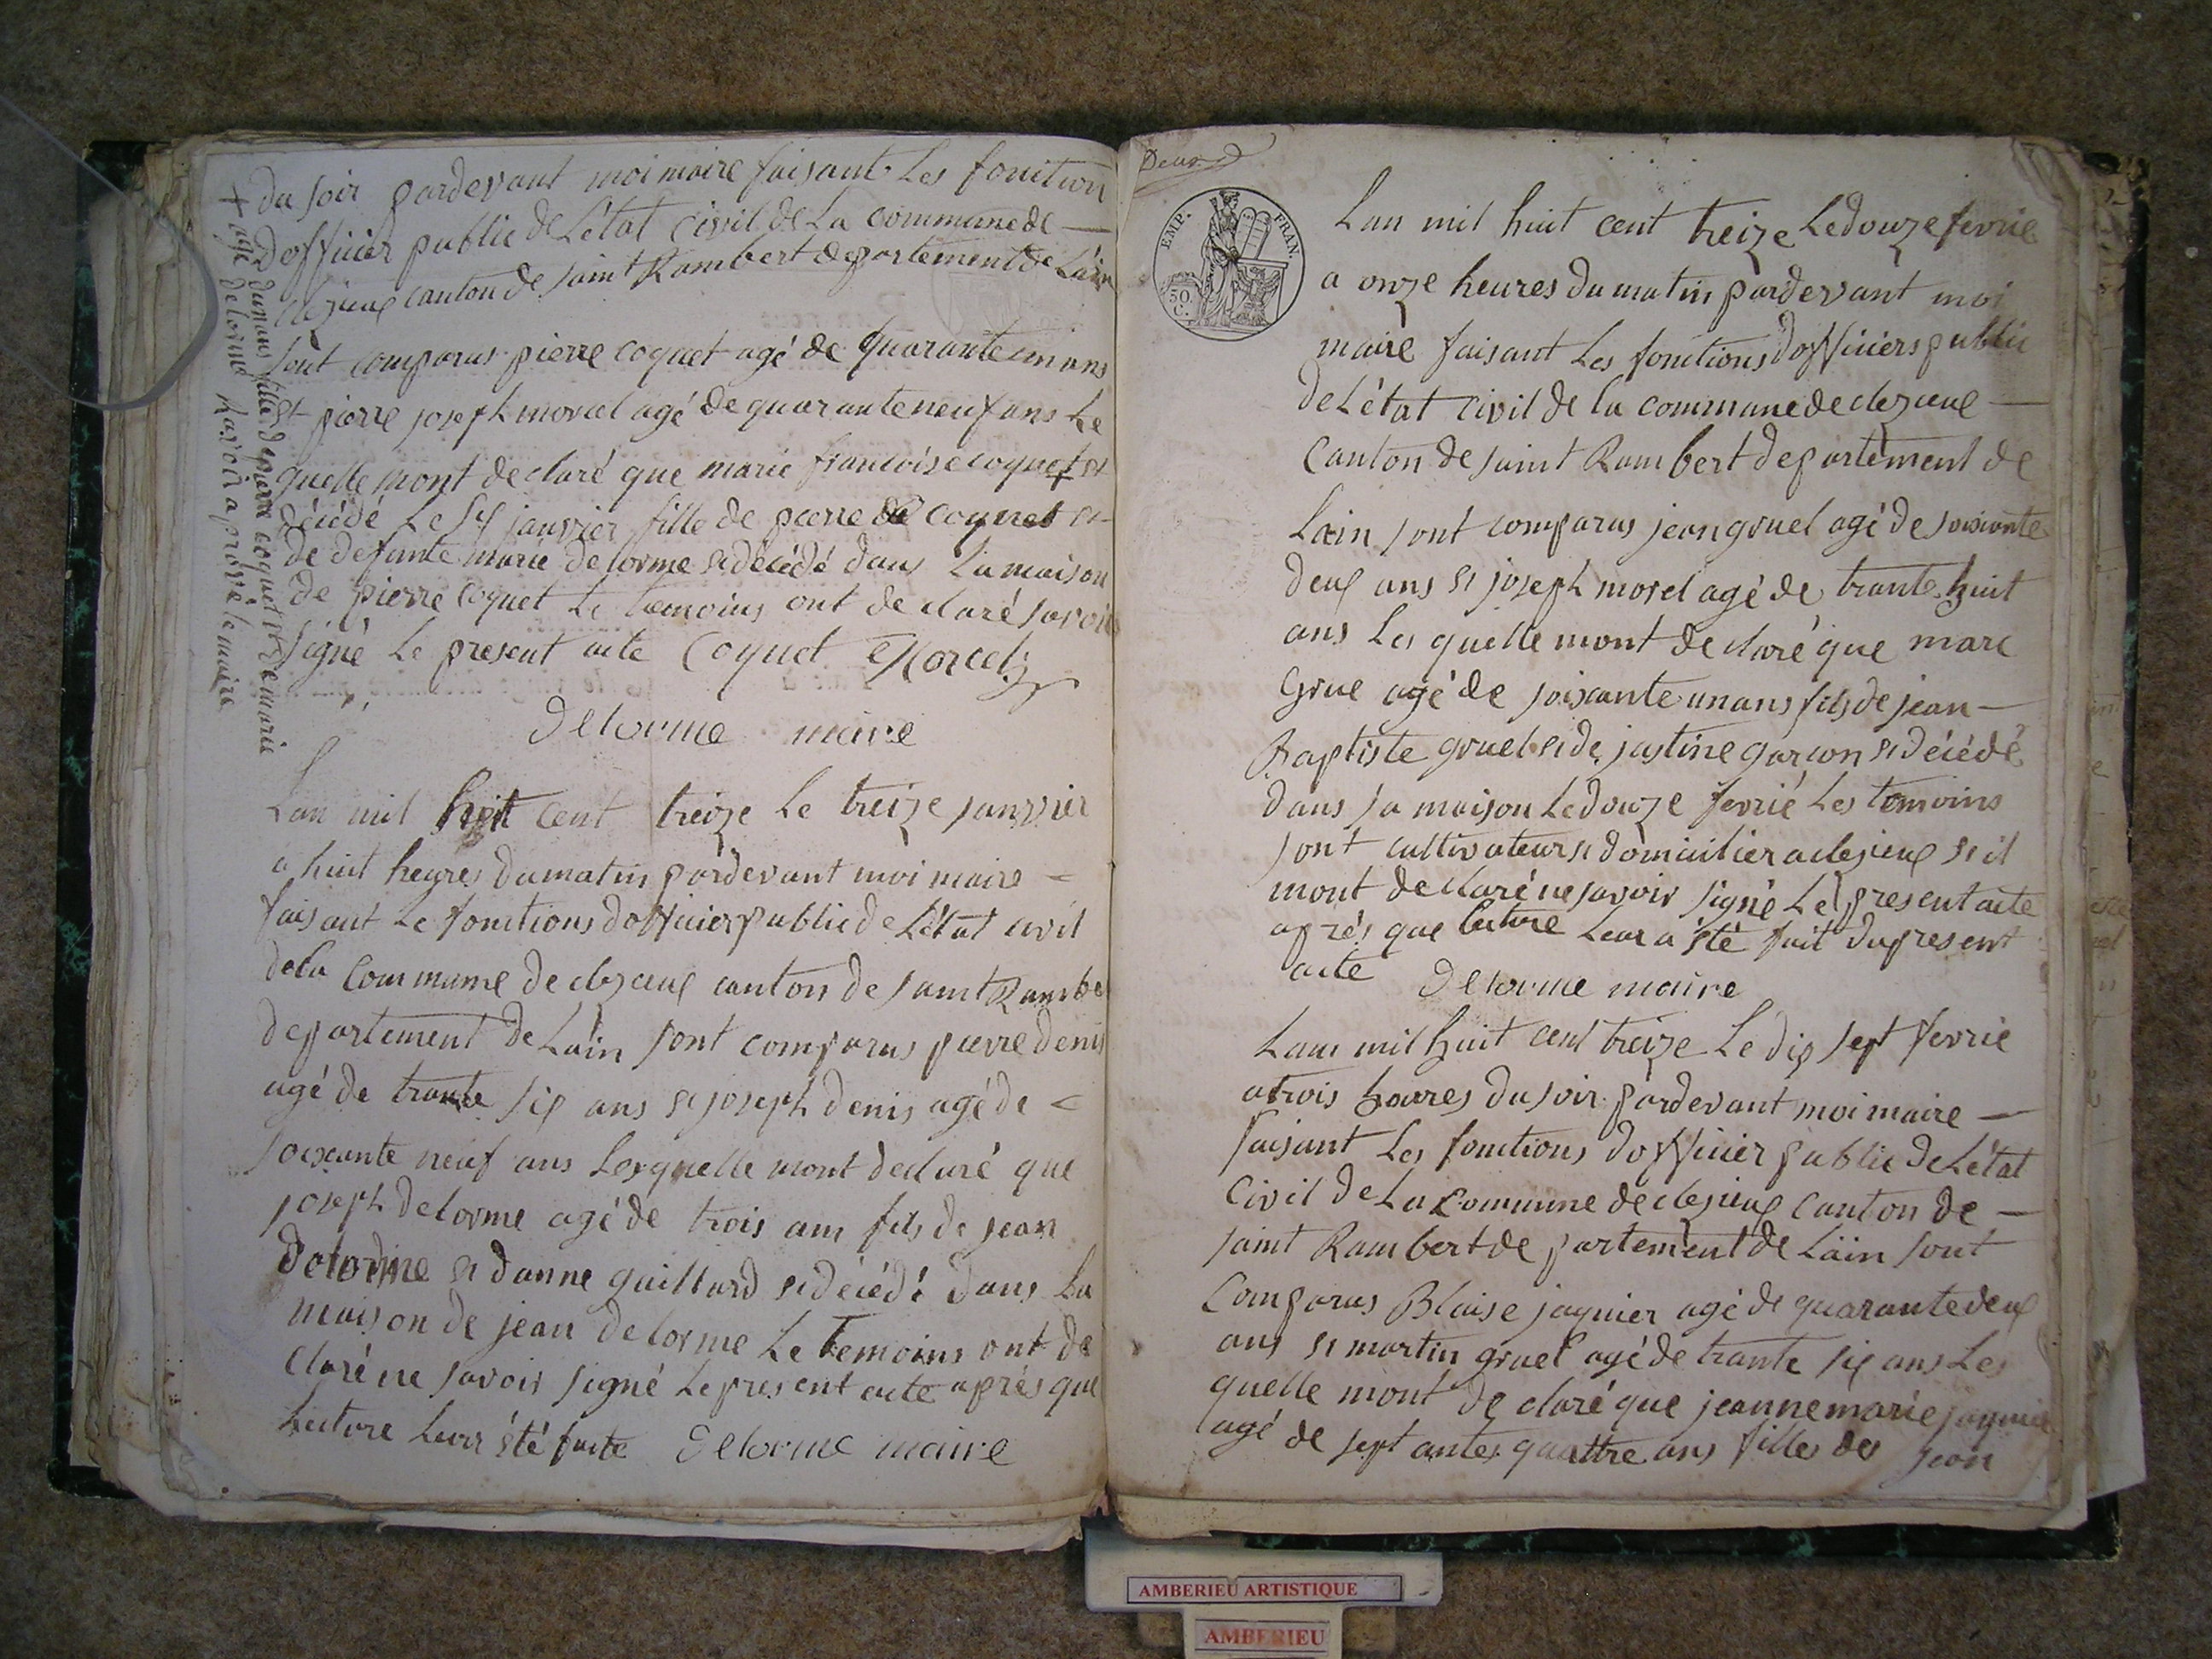 du soir pardevant moi maire faisant Les fonction
dofficier public de Létat civil de La commune de
clezieux canton de saint Rambert departement de Lain
sont comparus pierre coquet agé de quarante cin ans
et pierre joseph morcel agé de quarante neuf ans Le
quelle mont declaré que marie francoise coquet + et
décédé Le six janvier fille de pierre coquet et
de defunte marie delorme et décédé dans La maison
de pierre coquet Le temoins ont declaré savoir
signé Le present acte Coquet Morcel
Delorme maire
+ agé dun ans fille de pierre coquet et de marie
delorme apprové le maire
Lan mil huit cent treize Le treize janvier
a huit heures du matin pardevant moi maire
faisant Le fonctions dofficier public de Létat civil
de La commune de clezieux canton de saint Rambe
departement de Lain sont comparus pierre denis
agé de trante six ans et joseph denis agé de
soixante neuf ans Lesquelle mont declaré que
joseph delorme agé de trois ans fils de jean
delorme et danne guillard et décédé dans La
maison de jean delorme Le temoins ont de
claré ne savoir signé Le present acte aprés que
Lecture Leur été faite Delorme maire
Deux
EMP. FRAN.
50 C.
Lan mil huit cent treize Le douze fevrie
a onze heures du matin pardevant moi
maire faisant Les fonctions dofficiers public
de Létat civil de la commune de clezieux
Canton de saint Rambert departement de
Lain sont comparus jean gruel agé de soisante
deux ans et joseph morel agé de trante huit
ans Les quelle mont declaré que marc
Grue agé de soixante un ans fils de jean
Baptiste gruel et de justine garcon et décédé
dans sa maison Le douze fevrié Les temoins
sont cultivateurs et domicilier a clezieux et il
mont declaré ne savoir signé Le present acte
aprés que lecture Leur a été fait du present
acte Delorme maire
Lan mil huit cent treize Le dix sept fevrie
a trois heures du soir pardevant moi maire
faisant Les fonctions dofficier public de Létat
Civil de La commune de clezieux Canton de
saint Rambert departement de Lain sont
Comparus Blaise jaquier agé de quarante deux
ans et martin gruel agé de trante six ans Les
quelle mont declaré que jeanne marie jaquie
agé de septante quattre ans fille de jean
AMBERIEU ARTISTIQUE
AMBERIEU